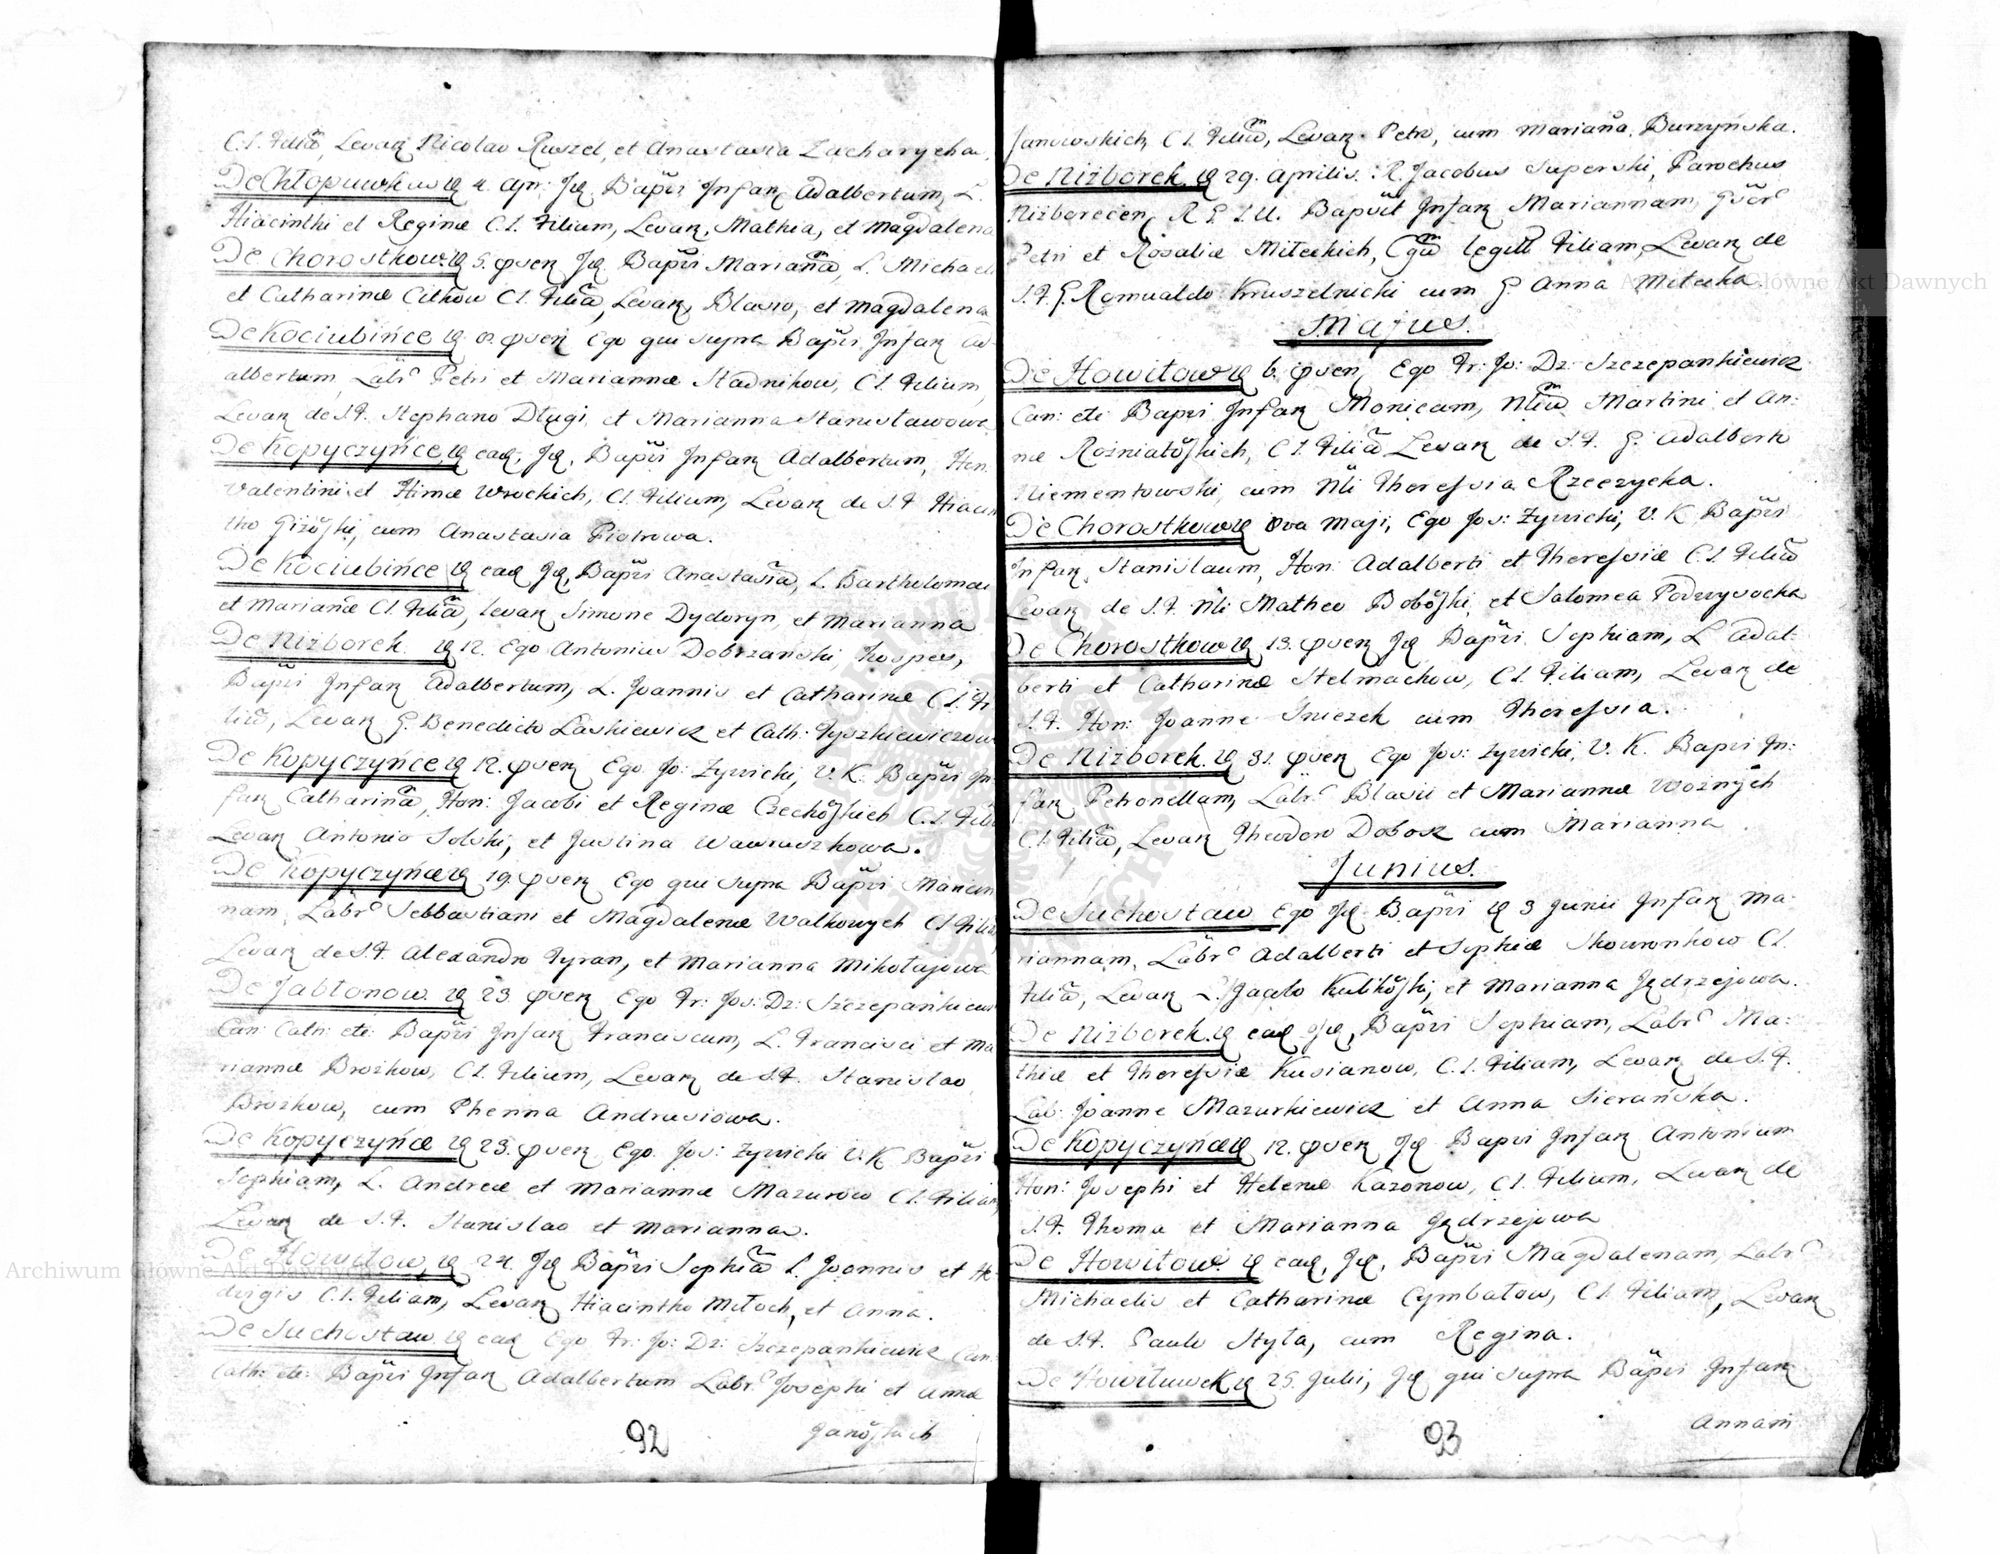 C.L. Filiã, Levan Nicolao Ruszel, et Anastasia Zacharycha.
De Chłopuwka 4. Apr: Id. Bapũi Infan Adalbertum, L.
Hiacinthi et Reginæ C.L. Filium, Levan, Mathia, et Magdalena
De Chorostkow 5. Bapũi Marianã, L. Michae
et Catharinæ Citkow C.L. Filiã, Levan, Blasio, et Magdalena
De Kociubińce Ego qui supra Bapũi Infan Ad
albertum, Labr Petri et Mariannæ Stadnikow, C.L. Filium,
Levan de S.F. Stephano Długi, et Marianna Stanisławowe
De Kopyczyńce ead. Id. Bapũi Infan Adalbertum, Hon.
Valentini et Wrockich, C.L. Filium, Levan de S.F. Hiacin
tho, cum Anastasia Piotrowa.
De Kociubińce ead Id. Bapũi Anastasiã, L. Bartholomæi
et Marianæ C.L. Filiã, levan Simone Dydoryn, et Marianna
De Niżborek 12. Ego Antonius Dobrzański, hospes,
Bapũi Infan Adalbertum, L. Joannis et Catharinæ C.L. Fi
liũ, Levan G. Benedicto Laskiewicz et Cath: Tyszkiewiczow
De Kopyczyńce 12. Ego Jo: Zywicki, V.K. Bapũi In
fan Catharinã, Hon: Jacobi et Reginæ Czechoskich C.L. Fili
Levan Antonio Solski, et Justina Wawruszkowa.
De Kopyczyńce 19. Ego qui supra Bapũi Marian
nam, Labr Sebbastiani et Magdalenæ Walkowych C.L. Filiã
Levan de S.F. Alexandro Tyran, et Marianna Mikołajowa
De Jabłonow 23. Ego Fr: Jos: Dz: Szczepankiewicz
Can: Cath: etc: Bapũi Infan Franciscum, L. Francisci et Ma
riannæ Brożkow, C.L. Filium, Levan de S.F. Stanislao
Brożkow, cum Andrusiowa.
De Kopyczyńce 23. Ego Jos: Zywicki V.K. Bapũi
Sophiam, L. Andreæ et Mariannæ Mazurow C.L. Filiam
Levan de S.F. Stanislao et Marianna.
De Howiłow 24. Id Bapũi Sophiã L. Joannis et He
dvigis C.L. Filiam, Levan Hiacintho Młtoch, et Anna.
De Suchostaw ead Ego Fr: Jo: Dz: Szczepankiewicz Can:
Cath: etc: Bapũi Infan Adalbertum Labr Josephi et Annæ
Janoskich
92
Janowskich, C.L. Filiũ, Levan Petro, cum Marianã Burzyńska.
De Niżborek 29. Aprilis. R. Jacobus Superski, Parochus
Niżborecen, Bapũit Infan Mariannam,
Petri et Rosaliæ Miteckich, legitt Filiam, Levan de
S.F. G. Romualdo Kruszelnicki cum G. Anna Mitecka.
Majus.
De Howiłow 6. Ego Fr: Jo: Dz: Szczepankiewicz
Can: etc Bapũi Infan Monicam, Martini et An:
næ Rożniatoskich, C.L. Filiã Levan de S.F. G. Adalberto
Niementowski, cum Theressia Rzeczycka.
De Chorostkow 8va Maji, Ego Jos: Zywicki, V.K. Bapũi
Infan Stanislaum, Hon: Adalberti et Theressiæ C.L. Filiũ
Levan de S.F. Matheo Boboski, et Salomea Podwysocka
De Chorostkow 13. Id Bapũi Sophiam, L Adal:
berti et Catharinæ Stelmachow, C.L. Filiam, Levan de
S.F. Hon: Joanne Sniezek cum Theressia.
De Niżborek 31. Ego Jos: Zywicki, V.K. Bapũi In:
fan Petronellam, Labr Blasii et Mariannæ Woźnych
C.L. Filiã, Levan Theodoro Dobosz cum Marianna
Junius.
De Suchostaw Ego Id Bapũi 3 Junii Infan Ma:
riannam, Labr Adalberti et Sophiæ Skowronkow C.L.
Filiã, Levan L. Jacko Kulikoski, et Marianna Jędrzejowa.
De Niżborek ead Id, Bapũi Sophiam, Labr Ma:
thiæ et Theressiæ Kusianow, C.L. Filiam, Levan de S.F.
Lab: Joanne Mazurkiewicz et Anna Sierańska.
De Kopyczyńce 12. Id Bapũi Infan Antonium
Hon: Josephi et Helenæ Kazonow, C.L. Filium, Levan de
S.F. Thoma et Marianna Jędrzejowa
De Howiłow ead, Id, Bapũi Magdalenam, Labr
Michaelis et Catharinæ Cymbałow, C.L. Filiam, Levan
de S.F. Paulo Styła, cum Regina.
De Howiłuwek 25. Julii, Id qui supra Bapũi Infan
Annam
93
Archiwum Główne Akt Dawnych
Archiwum Główne Akt Dawnych